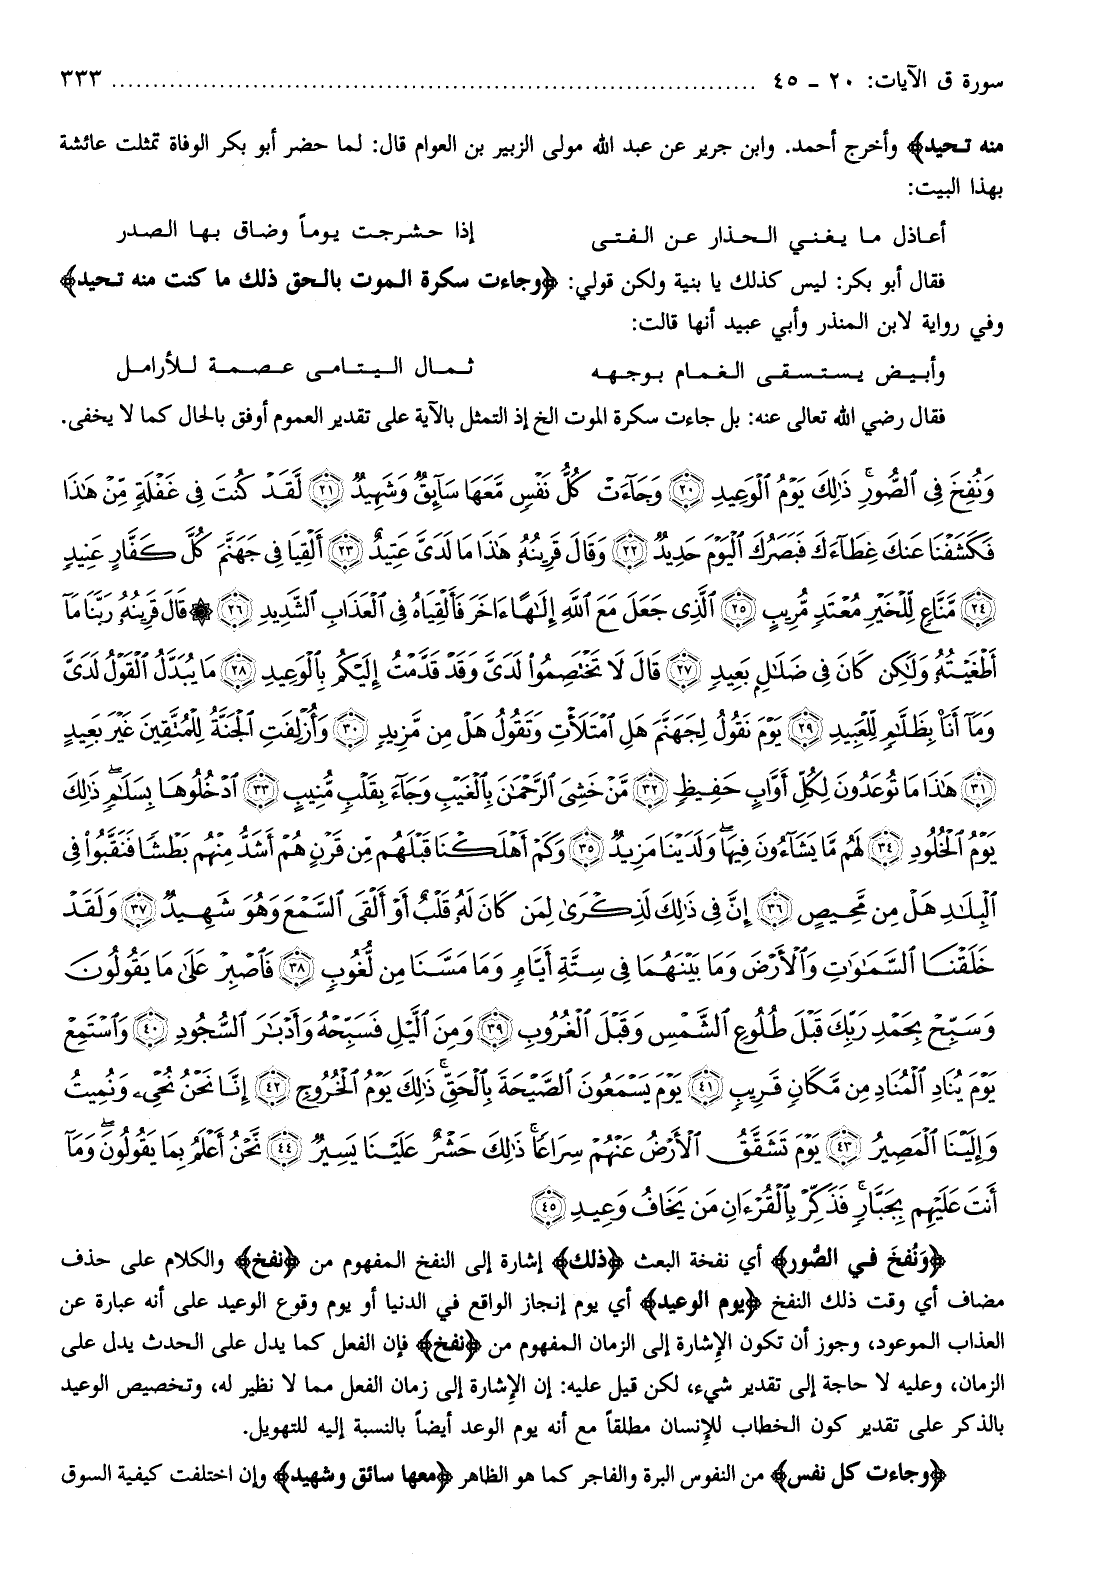 سورة ق الآيات: ٢٠ ـ ٤٥ ........................................................................ ٣٣٣
منه تحيد﴾ وأخرج أحمد. وابن جرير عن عبد الله مولى الزبير بن العوام قال: لما حضر أبو بكر الوفاة تمثلت عائشة
بهذا البيت:
أعاذل ما يغني الحذار عن الفتى إذا حشرجت يوماً وضاق بها الصدر
فقال أبو بكر: ليس كذلك يا بنية ولكن قولي: ﴿وجاءت سكرة الموت بالحق ذلك ما كنت منه تحيد﴾
وفي رواية لابن المنذر وأبي عبيد أنها قالت:
وأبيض يستسقى الغمام بوجهه ثمال اليتامى عصمة للأرامل
فقال رضي الله تعالى عنه: بل جاءت سكرة الموت الخ إذ التمثل بالآية على تقدير العموم أوفق بالحال كما لا يخفى.
وَنُفِخَ فِى ٱلصُّورِ ۚ ذَٰلِكَ يَوْمُ ٱلْوَعِيدِ ٢٠ وَجَآءَتْ كُلُّ نَفْسٍ مَّعَهَا سَآئِقٌ وَشَهِيدٌ ٢١ لَّقَدْ كُنتَ فِى غَفْلَةٍ مِّنْ هَٰذَا
فَكَشَفْنَا عَنكَ غِطَآءَكَ فَبَصَرُكَ ٱلْيَوْمَ حَدِيدٌ ٢٢ وَقَالَ قَرِينُهُۥ هَٰذَا مَا لَدَىَّ عَتِيدٌ ٢٣ أَلْقِيَا فِى جَهَنَّمَ كُلَّ كَفَّارٍ عَنِيدٍ
٢٤ مَّنَّاعٍ لِّلْخَيْرِ مُعْتَدٍ مُّرِيبٍ ٢٥ ٱلَّذِى جَعَلَ مَعَ ٱللَّهِ إِلَٰهًا ءَاخَرَ فَأَلْقِيَاهُ فِى ٱلْعَذَابِ ٱلشَّدِيدِ ٢٦ ۞ قَالَ قَرِينُهُۥ رَبَّنَا مَآ
أَطْغَيْتُهُۥ وَلَٰكِن كَانَ فِى ضَلَٰلٍۭ بَعِيدٍ ٢٧ قَالَ لَا تَخْتَصِمُوا۟ لَدَىَّ وَقَدْ قَدَّمْتُ إِلَيْكُم بِٱلْوَعِيدِ ٢٨ مَا يُبَدَّلُ ٱلْقَوْلُ لَدَىَّ
وَمَآ أَنَا۠ بِظَلَّٰمٍ لِّلْعَبِيدِ ٢٩ يَوْمَ نَقُولُ لِجَهَنَّمَ هَلِ ٱمْتَلَأْتِ وَتَقُولُ هَلْ مِن مَّزِيدٍ ٣٠ وَأُزْلِفَتِ ٱلْجَنَّةُ لِلْمُتَّقِينَ غَيْرَ بَعِيدٍ
٣١ هَٰذَا مَا تُوعَدُونَ لِكُلِّ أَوَّابٍ حَفِيظٍ ٣٢ مَّنْ خَشِىَ ٱلرَّحْمَٰنَ بِٱلْغَيْبِ وَجَآءَ بِقَلْبٍ مُّنِيبٍ ٣٣ ٱدْخُلُوهَا بِسَلَٰمٍ ۖ ذَٰلِكَ
يَوْمُ ٱلْخُلُودِ ٣٤ لَهُم مَّا يَشَآءُونَ فِيهَا ۖ وَلَدَيْنَا مَزِيدٌ ٣٥ وَكَمْ أَهْلَكْنَا قَبْلَهُم مِّن قَرْنٍ هُمْ أَشَدُّ مِنْهُم بَطْشًا فَنَقَّبُوا۟ فِى
ٱلْبِلَٰدِ هَلْ مِن مَّحِيصٍ ٣٦ إِنَّ فِى ذَٰلِكَ لَذِكْرَىٰ لِمَن كَانَ لَهُۥ قَلْبٌ أَوْ أَلْقَى ٱلسَّمْعَ وَهُوَ شَهِيدٌ ٣٧ وَلَقَدْ
خَلَقْنَا ٱلسَّمَٰوَٰتِ وَٱلْأَرْضَ وَمَا بَيْنَهُمَا فِى سِتَّةِ أَيَّامٍ وَمَا مَسَّنَا مِن لُّغُوبٍ ٣٨ فَٱصْبِرْ عَلَىٰ مَا يَقُولُونَ
وَسَبِّحْ بِحَمْدِ رَبِّكَ قَبْلَ طُلُوعِ ٱلشَّمْسِ وَقَبْلَ ٱلْغُرُوبِ ٣٩ وَمِنَ ٱلَّيْلِ فَسَبِّحْهُ وَأَدْبَٰرَ ٱلسُّجُودِ ٤٠ وَٱسْتَمِعْ
يَوْمَ يُنَادِ ٱلْمُنَادِ مِن مَّكَانٍ قَرِيبٍ ٤١ يَوْمَ يَسْمَعُونَ ٱلصَّيْحَةَ بِٱلْحَقِّ ۚ ذَٰلِكَ يَوْمُ ٱلْخُرُوجِ ٤٢ إِنَّا نَحْنُ نُحْىِۦ وَنُمِيتُ
وَإِلَيْنَا ٱلْمَصِيرُ ٤٣ يَوْمَ تَشَقَّقُ ٱلْأَرْضُ عَنْهُمْ سِرَاعًا ۚ ذَٰلِكَ حَشْرٌ عَلَيْنَا يَسِيرٌ ٤٤ نَّحْنُ أَعْلَمُ بِمَا يَقُولُونَ ۖ وَمَآ
أَنتَ عَلَيْهِم بِجَبَّارٍ ۖ فَذَكِّرْ بِٱلْقُرْءَانِ مَن يَخَافُ وَعِيدِ ٤٥
﴿وَنُفخَ في الصُّور﴾ أي نفخة البعث ﴿ذلك﴾ إشارة إلى النفخ المفهوم من ﴿نفخ﴾ والكلام على حذف
مضاف أي وقت ذلك النفخ ﴿يوم الوعيد﴾ أي يوم إنجاز الواقع في الدنيا أو يوم وقوع الوعيد على أنه عبارة عن
العذاب الموعود، وجوز أن تكون الإشارة إلى الزمان المفهوم من ﴿نفخ﴾ فإن الفعل كما يدل على الحدث يدل على
الزمان، وعليه لا حاجة إلى تقدير شيء، لكن قيل عليه: إن الإشارة إلى زمان الفعل مما لا نظير له، وتخصيص الوعيد
بالذكر على تقدير كون الخطاب للإنسان مطلقاً مع أنه يوم الوعد أيضاً بالنسبة إليه للتهويل.
﴿وجاءت كل نفس﴾ من النفوس البرة والفاجر كما هو الظاهر ﴿معها سائق وشهيد﴾ وإن اختلفت كيفية السوق